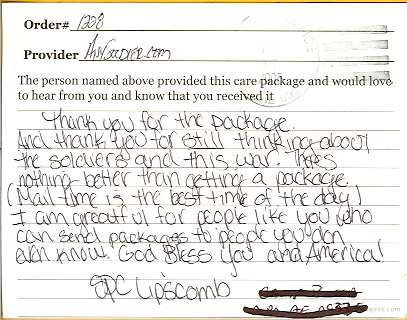 Order# 1208
Provider AnySoldier.com
The person named above provided this care package and would love
to hear from you and know that you received it
Thank you for the package.
And thank you for still thinking about
the soldiers and this war. Theres
nothing better than getting a package.
(Mail time is the best time of the day)
I am greatful for people like you who
can send packages to people you don
even know. God Bless you and America!
SPC Lipscomb